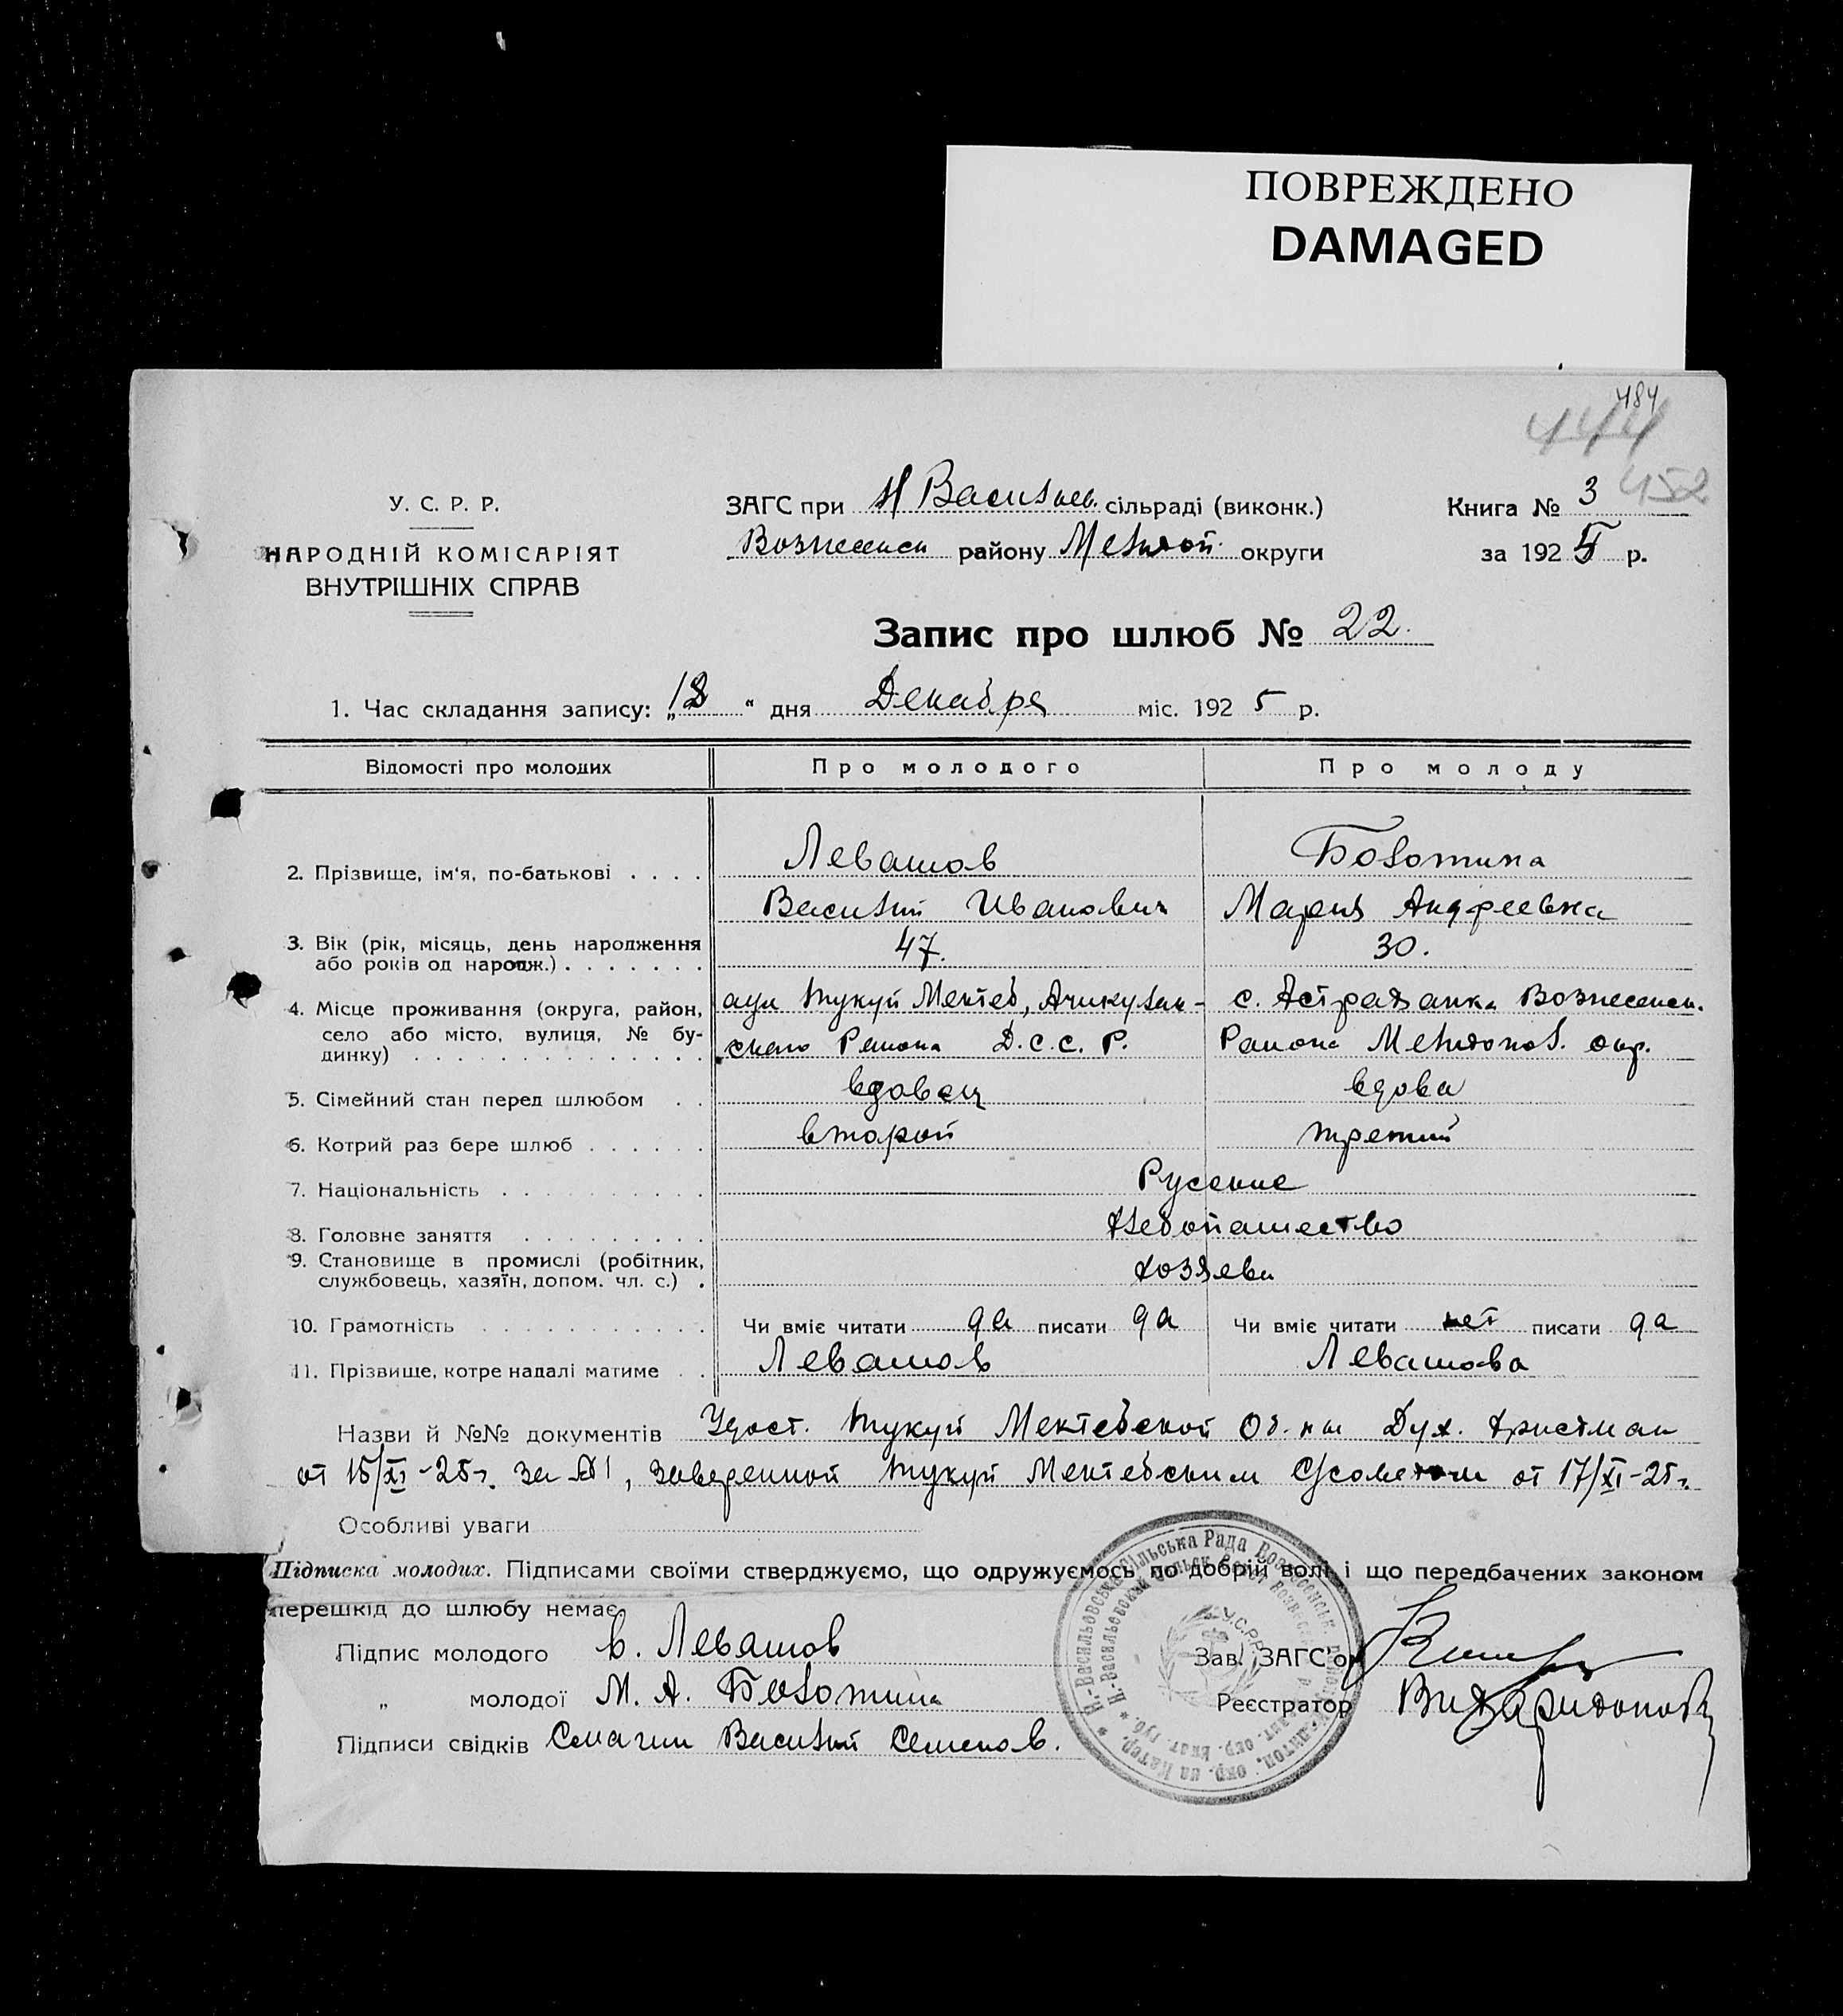 ПОВРЕЖДЕНО
DAMAGED
484
444
452
У. С. Р. Р.
НАРОДНІЙ КОМІСАРІЯТ
ВНУТРІШНІХ СПРАВ
ЗАГС при Н Васильев. сільраді (виконк.)
Вознесенск району Мелитоп. округи
Книга № 3
за 1925 р.
Запис про шлюб № 22.
1. Час складання запису: „18“ дня Декабря міс. 1925 р.
Відомості про молодих Про молодого Про молоду
2. Прізвище, ім'я, по-батькові . . . . Левашов Болотина
Василий Иванович Мария Андреевна
3. Вік (рік, місяць, день народження або років од народж.) . . . . . . . 47. 30.
4. Місце проживання (округа, район, село або місто, вулиця, № будинку) . . . . . . . . . . . . . .
аул Тукуй Мектеб, Ачикулак- с. Астраханка Вознесенск.
ского Района Д.С.С.Р. Района Мелитопол. окр.
5. Сімейний стан перед шлюбом . . вдовец вдова
6. Котрий раз бере шлюб . . . . . . второй третий
7. Національність . . . . . . . . . . Русские
8. Головне заняття . . . . . . . . . Хлебопашество
9. Становище в промислі (робітник, службовець, хазяїн, допом. чл. с.) . хозяева
10. Грамотність . . . . . . . . . . . Чи вміє читати да писати да Чи вміє читати нет писати да
11. Прізвище, котре надалі матиме . . Левашов Левашова
Назви й №№ документів Удост. Тукуй Мектебской Об-ны Дух. Христиан
от 15/XI-25г. за №1, заверенной Тукуй Мектебским С/советом от 17/XI-25г.
Особливі уваги
Підписка молодих. Підписами своїми стверджуємо, що одружуємось по добрій волі і що передбачених законом
перешкід до шлюбу немає.
Підпис молодого В. Левашов Зав. ЗАГС'ом
„ молодої М. А. Болотина Реєстратор
Підписи свідків Смагин Василий Семенов.
Н.-Васильовська Сільська Рада Вознесенськ. району Мелітоп. окр. на Катер.
У.С.Р.Р.